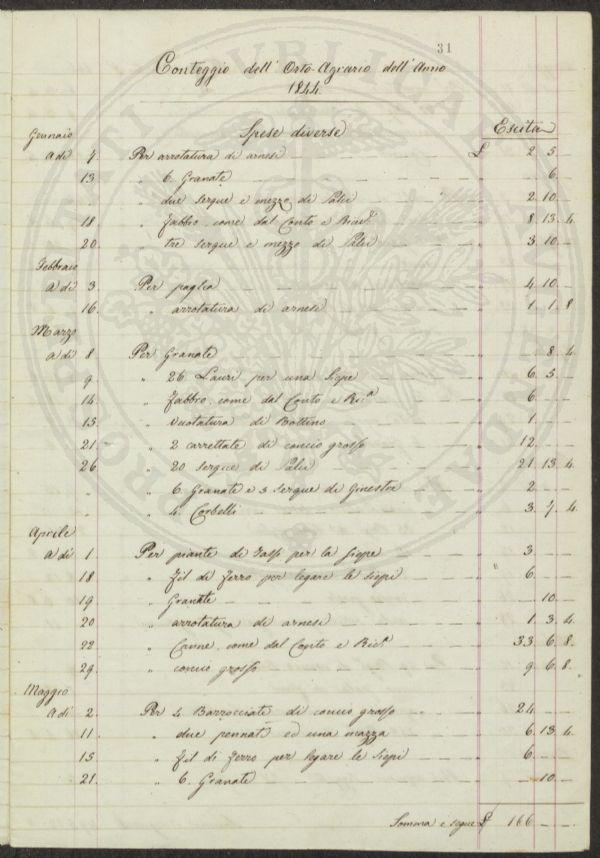 31
Conteggio dell' Orto-Agrario dell' Anno
1844.
Spese diverse Escita
Gennaio
a di 7. Per arrotatura di arnesi £ 2. 5. —
13 " 6. Granate " — 6. —
" due serque e mezzo di Pali " 2. 10. —
18 " Fabbro, come dal Conto e Ric.ª " 8. 13. 4
20 " tre serque e mezzo di Pali " 3. 10. —
Febbraio
a di 3 Per paglia " 4. 10. —
16. " arrotatura di arnesi " 1. 1. 8
Marzo
a di 8 Per Granate " — 8. 4
9 " 26 Lauri per una Siepe " 6. 5. —
14 " Fabbro, come dal Conto e Ric.ª " 6. — —
15 " vuotatura di Bottino " 1. — —
21. " 2 carrettate di concio grosso " 12. — —
26 " 20 serque di Pali " 21. 13. 4
" " 6. Granate e 3 serque di Ginestra " 2. — —
" " 4 Corbelli " 3. 7. 4
Aprile
a di 1 Per piante di per la Siepe " 3. — —
18 " fil di ferro per legare le siepi " 6. — —
19 " Granate " — 10. —
20 " arrotatura di arnesi " 1. 3. 4
22 " Canne, come dal Conto e Ric.ª " 33. 6. 8
29. " concio grosso " 9. 6. 8
Maggio
a di 2. Per 4 Barrocciate di concio grosso " 24 — —
11 " due pennati ed una mazza " 6. 13. 4
15 " fil di ferro per legare le Siepi " 6. — —
21. " 6. Granate " — 10. —
Somma e segue £ 166 — —